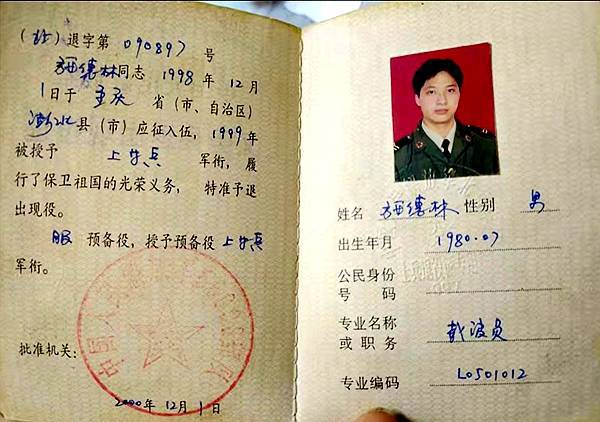 （北）退字第 090897 号
施德林同志 1998 年 12 月
1 日于 重庆 省（市、自治区）
彭水县（市）应征入伍，1999 年
被授予 上等兵 军衔，履
行了保卫祖国的光荣义务，特准予退
出现役。
服 预备役，授予预备役 上等兵
军衔。
批准机关：
2000 年 12 月 1 日
姓名 施德林 性别 男
出生年月 1980.07
公民身份
号 码
专业名称
或 职 务 载波员
专业编码 L0501012